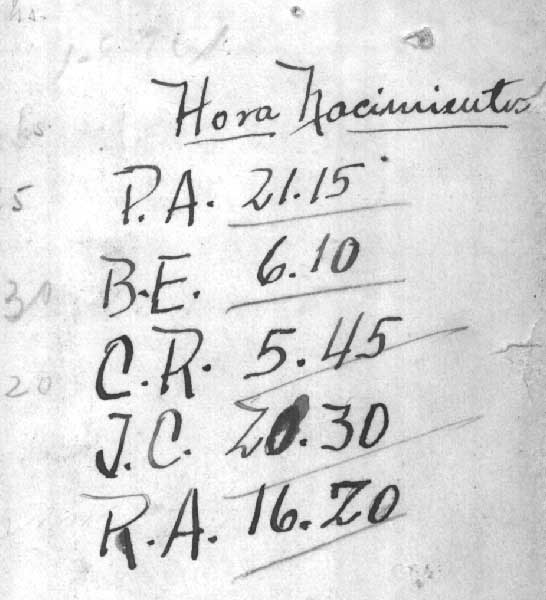 Hora Nacimientos
P.A. 21.15
B.E. 6.10
C.R. 5.45
J.C. 20.30
R.A. 16.20